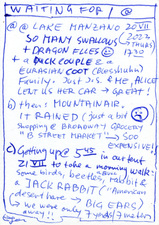 WAITING FOR / @
a) @ LAKE MANZANO 20 VII
SO MANY SWALLOWS 2022
+ DRAGON FLIES THURS
a DUCK COUPLE & a 1730
EURASIAN COOT (Blesshuhn)
Family. Just JS & ME, ALICE
LENT US HER CAR → GREAT!
b) then: MOUNTAINAIR.
IT RAINED (just a bit)
Shopping @ BROADWAY GROCERY
"B STREET MARKET" → SOO
EXPENSIVE!
c) Getting up @ 5 45 in our tent
21 VII to take a morning walk:
Some birds, beetles, rabbit &
a JACK RABBIT ("American
desert hare → BIG EARS)
→ we were only 7 yards / 7 meters
away!!